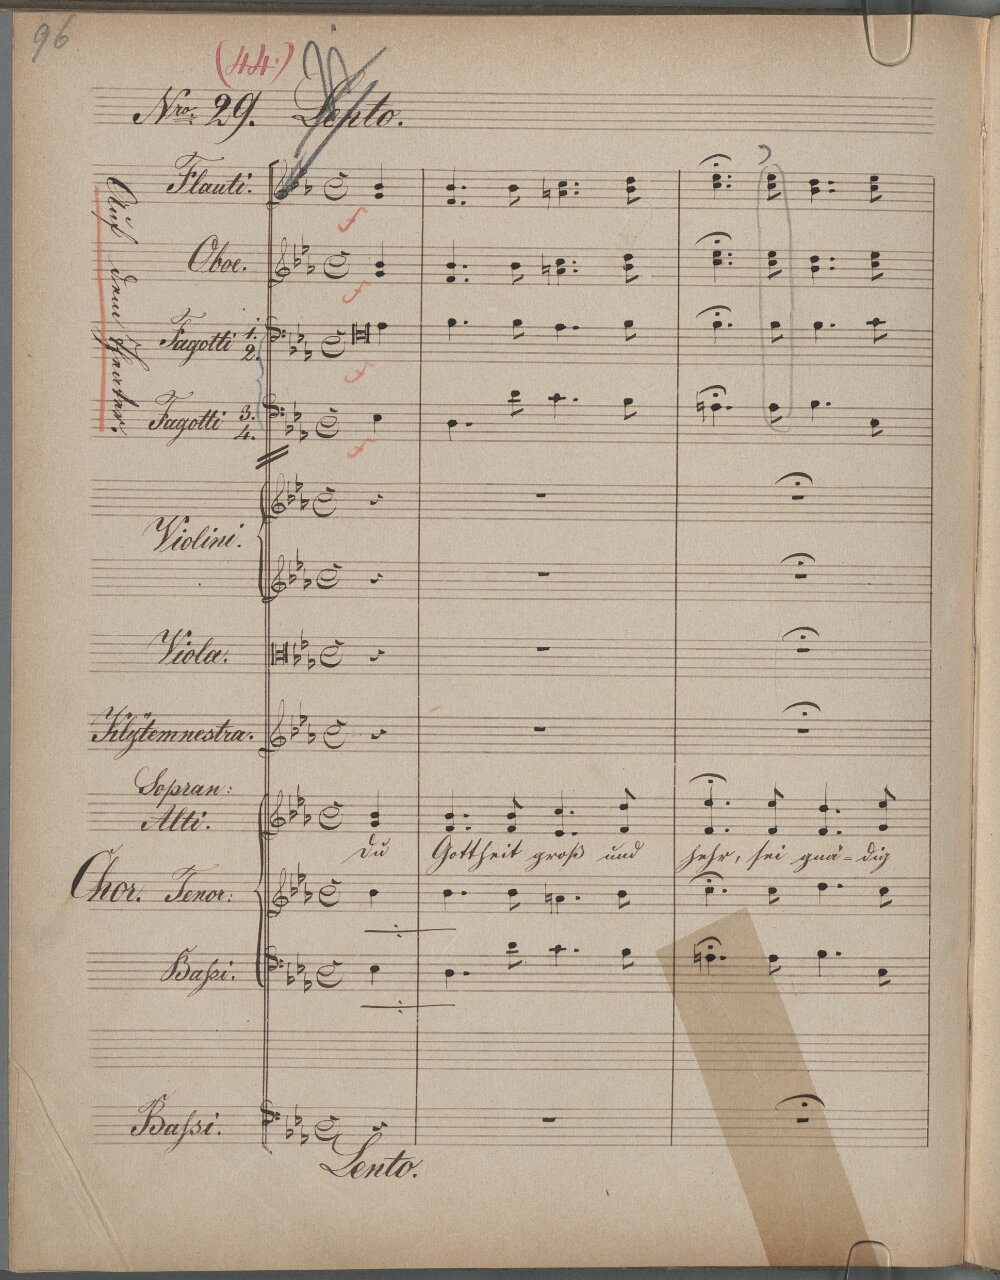 96
(44.)
Nro. 29. Lento.
Auf dem Theater.
Flauti.
f
Oboe.
f
Fagotti 1. 2.
f
Fagotti 3. 4.
f
Violini.
Viola.
Klÿtemnestra.
Sopran:
Alti.
du Gottheit groß und hehr, sei gnä-dig
Chor. Tenor:
Baßi.
Baßi.
Lento.